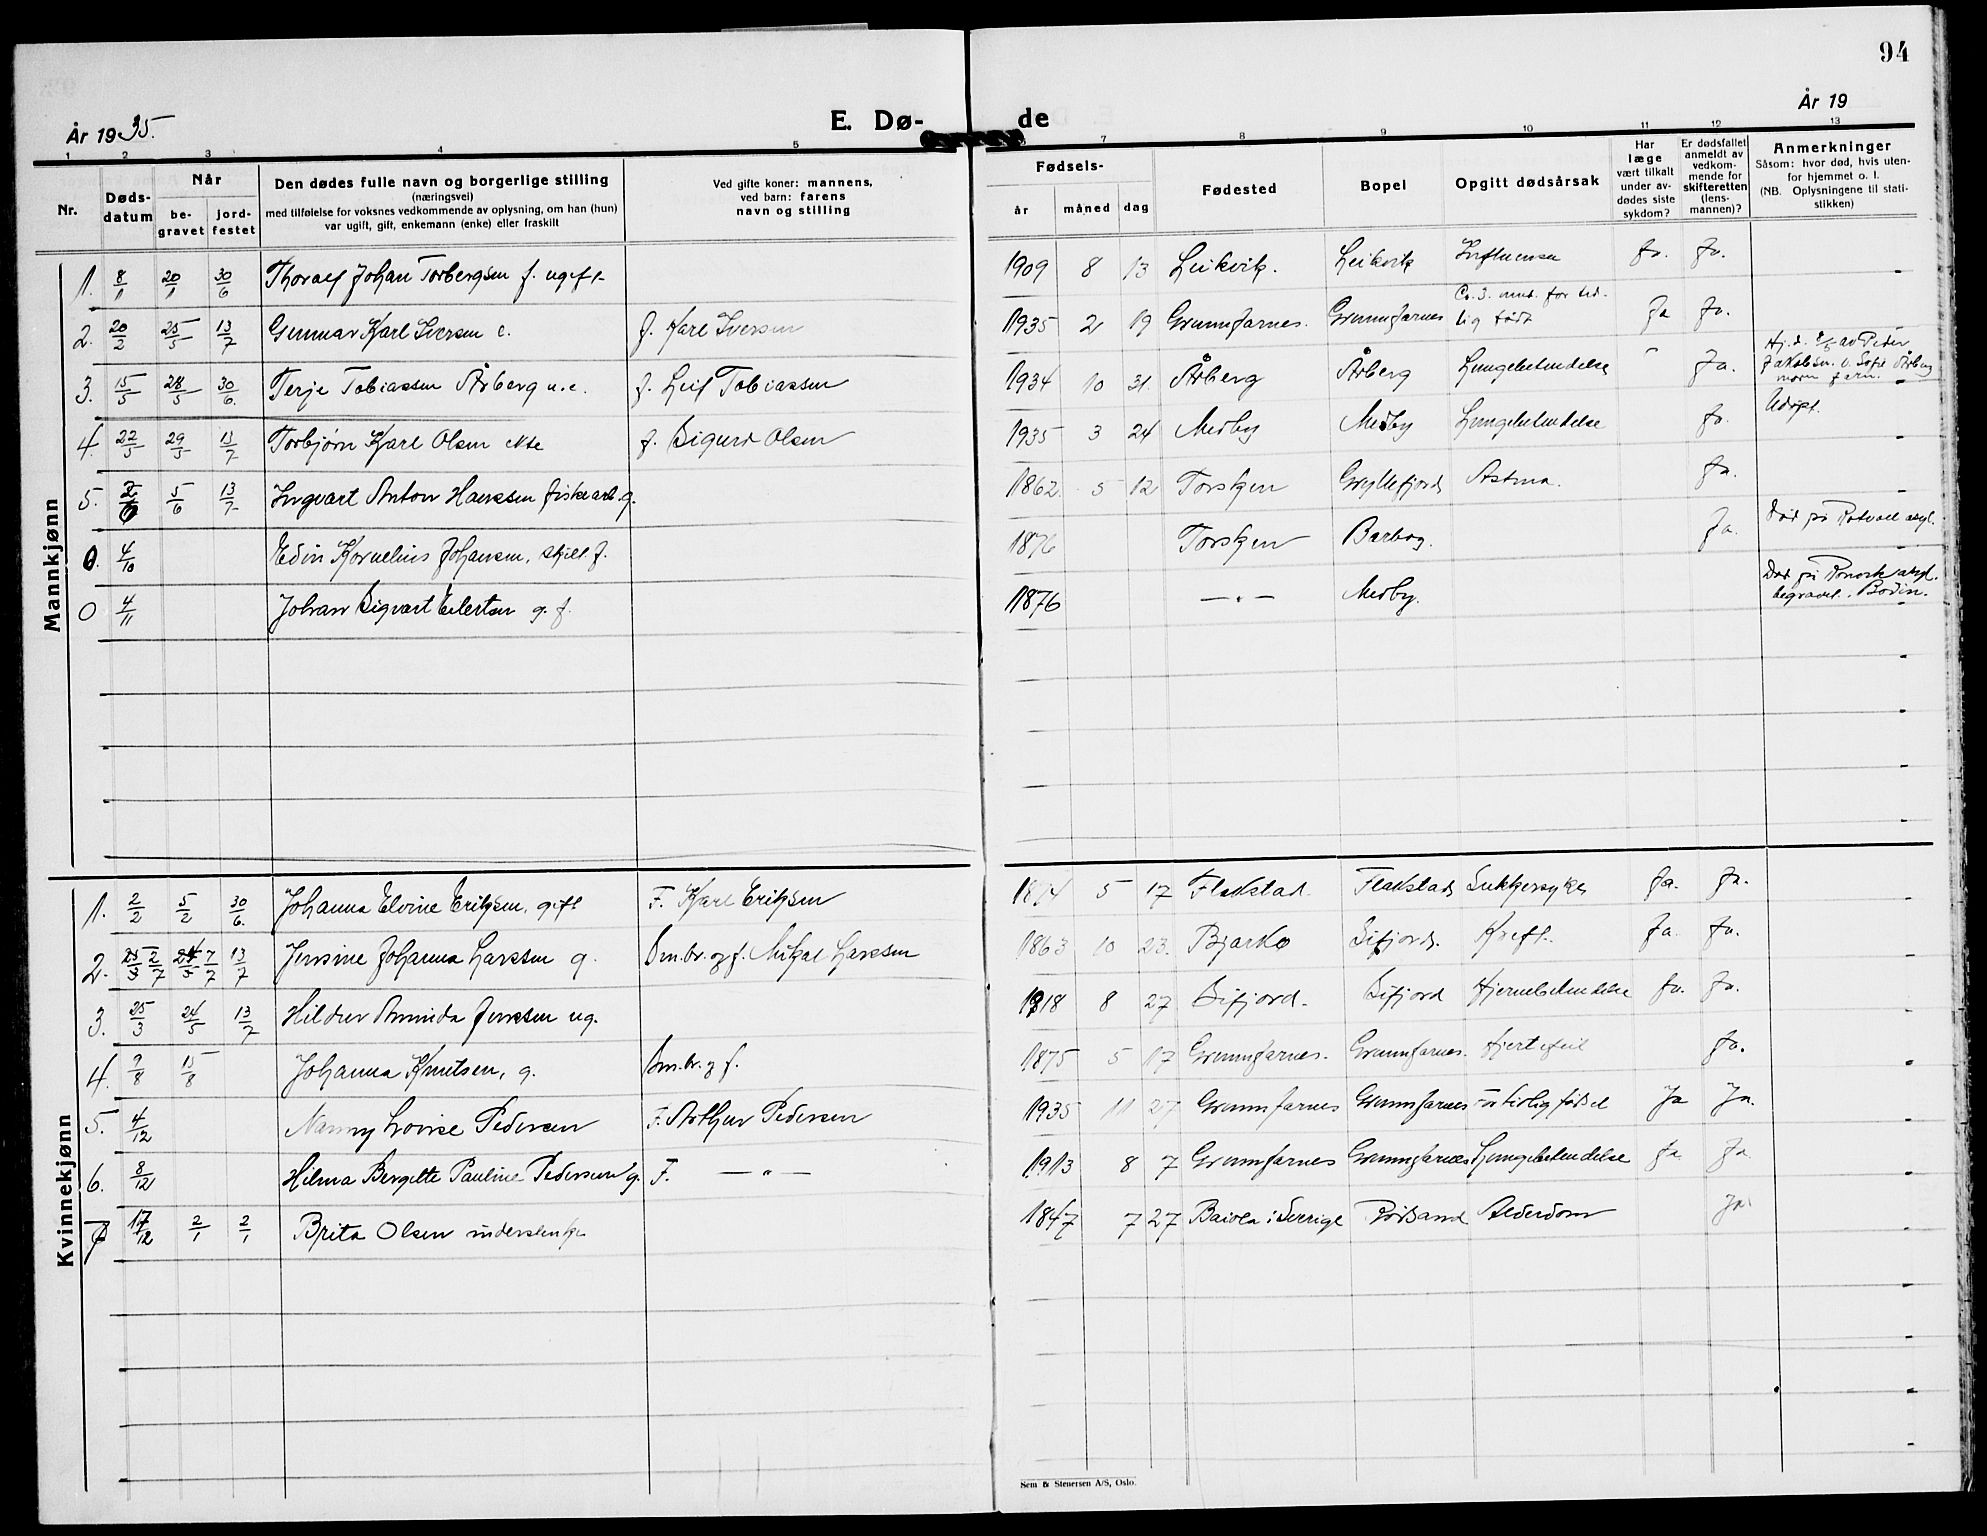 94
År 1935.
E. Dø-
de
År 19
1 2 3 4 5 7 8 9 10 11 12 13
Nr.
Døds-
datum
Når
be-
gravet
jord-
festet
Den dødes fulle navn og borgerlige stilling
(næringsvei)
med tilføielse for voksnes vedkommende av oplysning, om han (hun)
var ugift, gift, enkemann (enke) eller fraskilt
Ved gifte koner: mannens,
ved barn: farens
navn og stilling
Fødsels-
år måned dag
Fødested
Bopel
Opgitt dødsårsak
Har
læge
vært tilkalt
under av-
dødes siste
sykdom?
Er dødsfallet
anmeldt av
vedkom-
mende for
skifteretten
(lens-
mannen)?
Anmerkninger
Såsom: hvor død, hvis uten-
for hjemmet o. l.
(NB. Oplysningene til stati-
stikken)
Mannkjønn
1. 8/1 20/1 30/6 Thoralf Johan Torbergsen f. ugift 1909 8 13 Leikvik. Leikvik Influensa Ja. Ja.
2. 20/2 25/5 13/7 Gunnar Karl Iversen e. f. Karl Iversen 1935 2 19 Grunnfarnes. Grunnfarnes Ca. 3. mnd. for tid-
lig født Ja Ja.
3. 15/5 28/5 30/6. Terje Tobiassen Årberg u.e. f. Leif Tobiassen 1934 10 31 Årberg Årberg Lungebetendelse " Ja. Hj.d. av Peder
Jakobsen. v. Sofie Årberg
4. 22/5 29/5 13/7 Torbjørn Karl Olsen ekte f. Sigurd Olsen 1935 3 24 Medby Medby Lungebetendelse Ja. Adopt.
5. 2/6 5/6 13/7 Ingvart Anton Hanssen fiskearb. g. 1862 5 12 Torsken Gryllefjord Astma. Ja.
0. 4/10 Edin Kornelius Johansen, skilt f. 1876 Torsken Barbog. Ja. Død på Rotvoll asyl.
0 4/11 Johan Sigvart Eilertsen g. f. 1876 — " — Medby. Død på Rønvik asyl.
begravet. Bodin.
Kvinnekjønn
1. 2/2 5/2 30/6. Johanna Elvine Eriksen, gift F. Karl Eriksen 5 17 Flakstad. Flakstad Sukkersyke Ja. Ja.
2. 25/3 2/7 24/5 7/7 13/7 Jensine Johanna Larssen g. Sm.br. og f. Mikal Larssen 1863 10 23. Bjarkø Sifjord. Kreft. Ja. Ja.
3. 25/3 24/5 13/7 Hildur Aminda Jenssen ug. 1918 8 27 Sifjord. Sifjord Hjernebetendelse Ja. Ja.
4. 7/8 15/8 Johanna Knutsen, g. Sm.br. og f. 1875 5 17 Grunnfarnes. Grunnfarnes. Hjertefeil Ja.
5. 4/12 Nanny Lovise Pedersen F. Arthur Pedersen 1935 11 27 Grunnfarnes Grunnfarnes For tidlig fødsel Ja Ja.
6. 8/12 Hilma Bergitte Pauline Pedersen g. F. — " — 1913 8 7 Grunnfarnes Grunnfarnes Lungebetendelse Ja Ja
7 17/12 2/1 2/1 Brita Olsen understenke 1847 7 27 i Sverige Rødsand Alderdom Ja.
Sem & Stenersen A/S, Oslo.